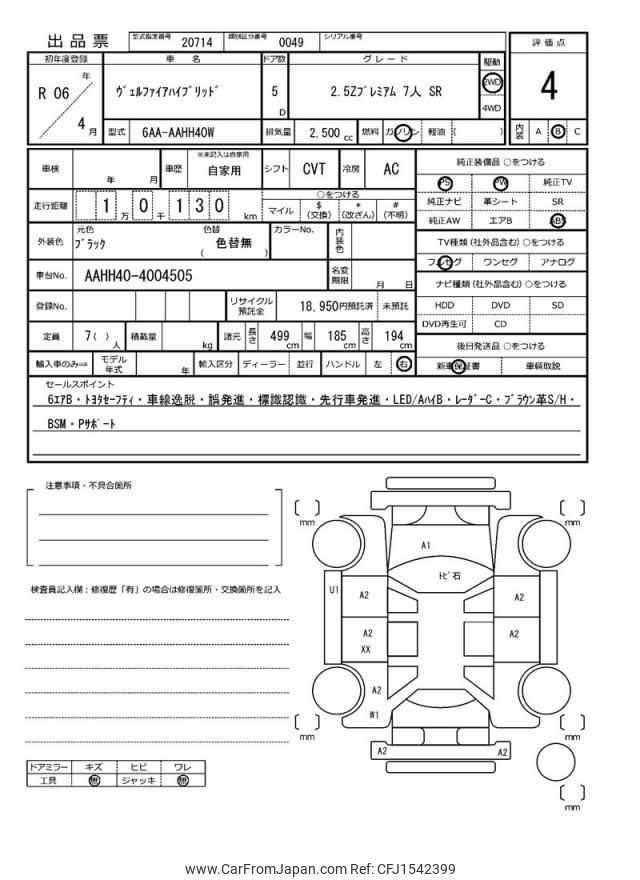 出品票 型式指定番号 20714 類別区分番号 0049 シリアル番号
評価点
4
初年度登録 車名 ドア数 グレード 駆動
R 06 年 4 月
ヴェルファイアハイブリッド 5 D 2.5Zプレミアム 7人 SR 2WD 4WD
型式 6AA-AAHH40W 排気量 2,500 cc 燃料 ガソリン 軽油 ( )
内装 A B C
車検 年 月 車歴 ※未記入は自家用 自家用 シフト CVT 冷房 AC
走行距離 1 万 0 千 1 3 0 km
○をつける
マイル $ (交換) * (改ざん) # (不明)
外装色 元色 ブラック 色替 色替無 ( ) カラーNo. 内装色
車台No. AAHH40-4004505 名変期限 月 日
登録No. リサイクル預託金 18,950円預託済 未預託
定員 7( ) 人 積載量 kg 諸元 長さ 499 cm 幅 185 cm 高さ 194 cm
輸入車のみ⇒ モデル年式 年 輸入区分 ディーラー 並行 ハンドル 左 右
純正装備品 ○をつける
PS PW 純正TV
純正ナビ 革シート SR
純正AW エアB ABS
TV種類 (社外品含む) ○をつける
フルセグ ワンセグ アナログ
ナビ種類 (社外品含む) ○をつける
HDD DVD SD
DVD再生可 CD
後日発送品 ○をつける
新車保証書 車輌取説
セールスポイント
6エアB・トヨタセーフティ・車線逸脱・誤発進・標識認識・先行車発進・LED/AハイB・レーダーC・ブラウン革S/H・
BSM・Pサポート
注意事項・不具合箇所
検査員記入欄：修復歴「有」の場合は修復箇所・交換箇所を記入
mm mm
A1
トビ石
U1 A2 A2
A2 XX A2
A2
W1
mm mm
A2 A2
mm
ドアミラー キズ ヒビ ワレ
工具 無 ジャッキ 無
www.CarFromJapan.com Ref: CFJ1542399